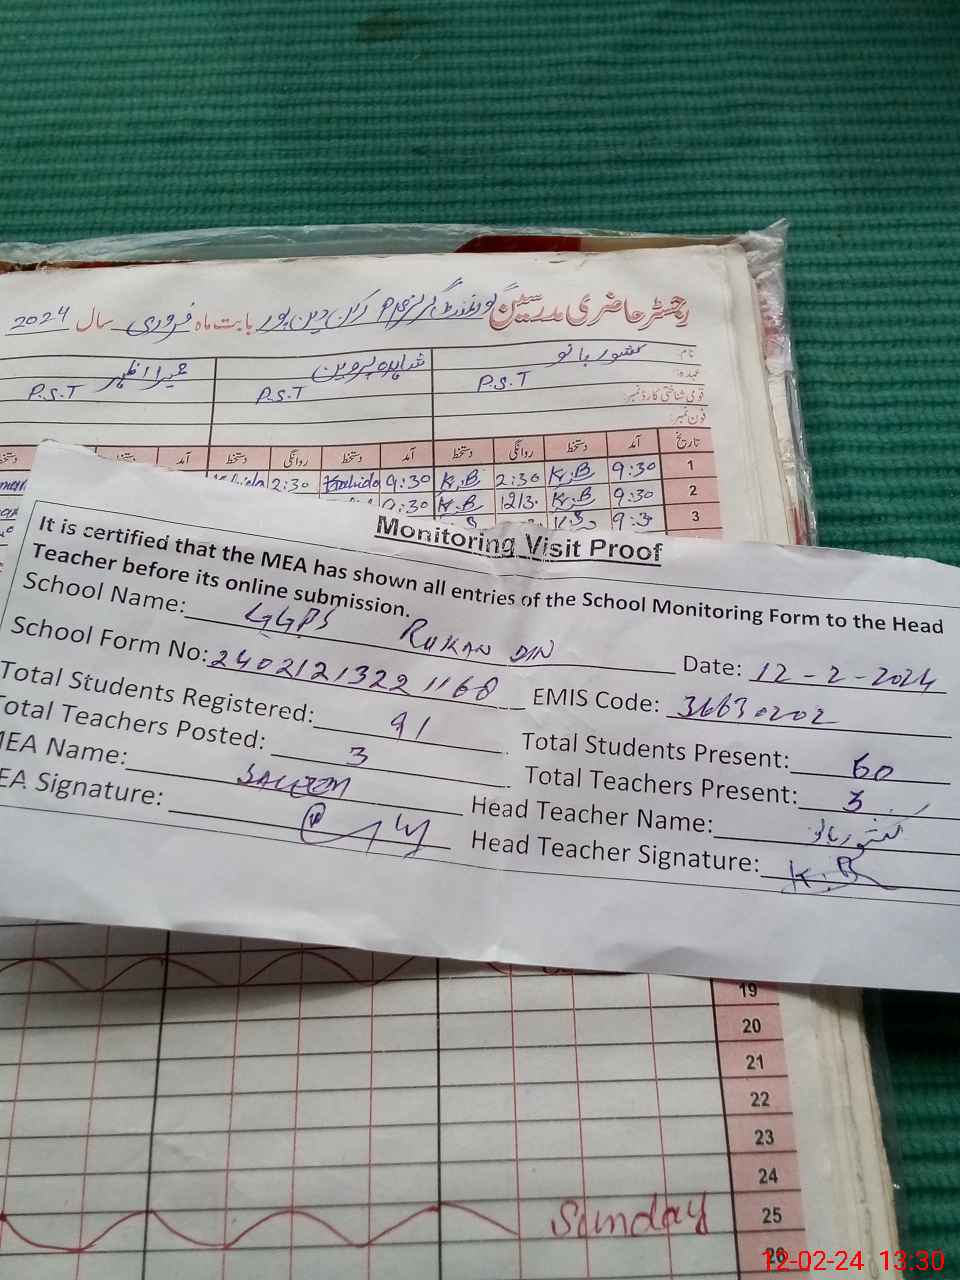 رجسٹر حاضری مدرسین گورنمنٹ گرلز P/S رکن دین پور بابت ماہ فروری سال 2024
نام: کشور بانو شاہدہ پروین
عہدہ: P.S.T P.S.T P.S.T
قومی شناختی کارڈ نمبر:
فون نمبر:
تاریخ آمد دستخط روانگی دستخط آمد دستخط روانگی دستخط آمد
1 9:30 K.B 2:30 K.B 9:30 2:30
2 9:30 K.B 12/3. K.B 9:30
3 9:3
Monitoring Visit Proof
It is certified that the MEA has shown all entries of the School Monitoring Form to the Head
Teacher before its online submission.
School Name: GGPS RUKAN DIN Date: 12-2-2024
School Form No: 2402121322 1168 EMIS Code: 36630202
Total Students Registered: 91 Total Students Present: 60
Total Teachers Posted: 3 Total Teachers Present: 3
MEA Name: SALEEM Head Teacher Name: کشور بانو
EA Signature: Head Teacher Signature: K.B
19
20
21
22
23
24
Sunday 25
26
12-02-24 13:30